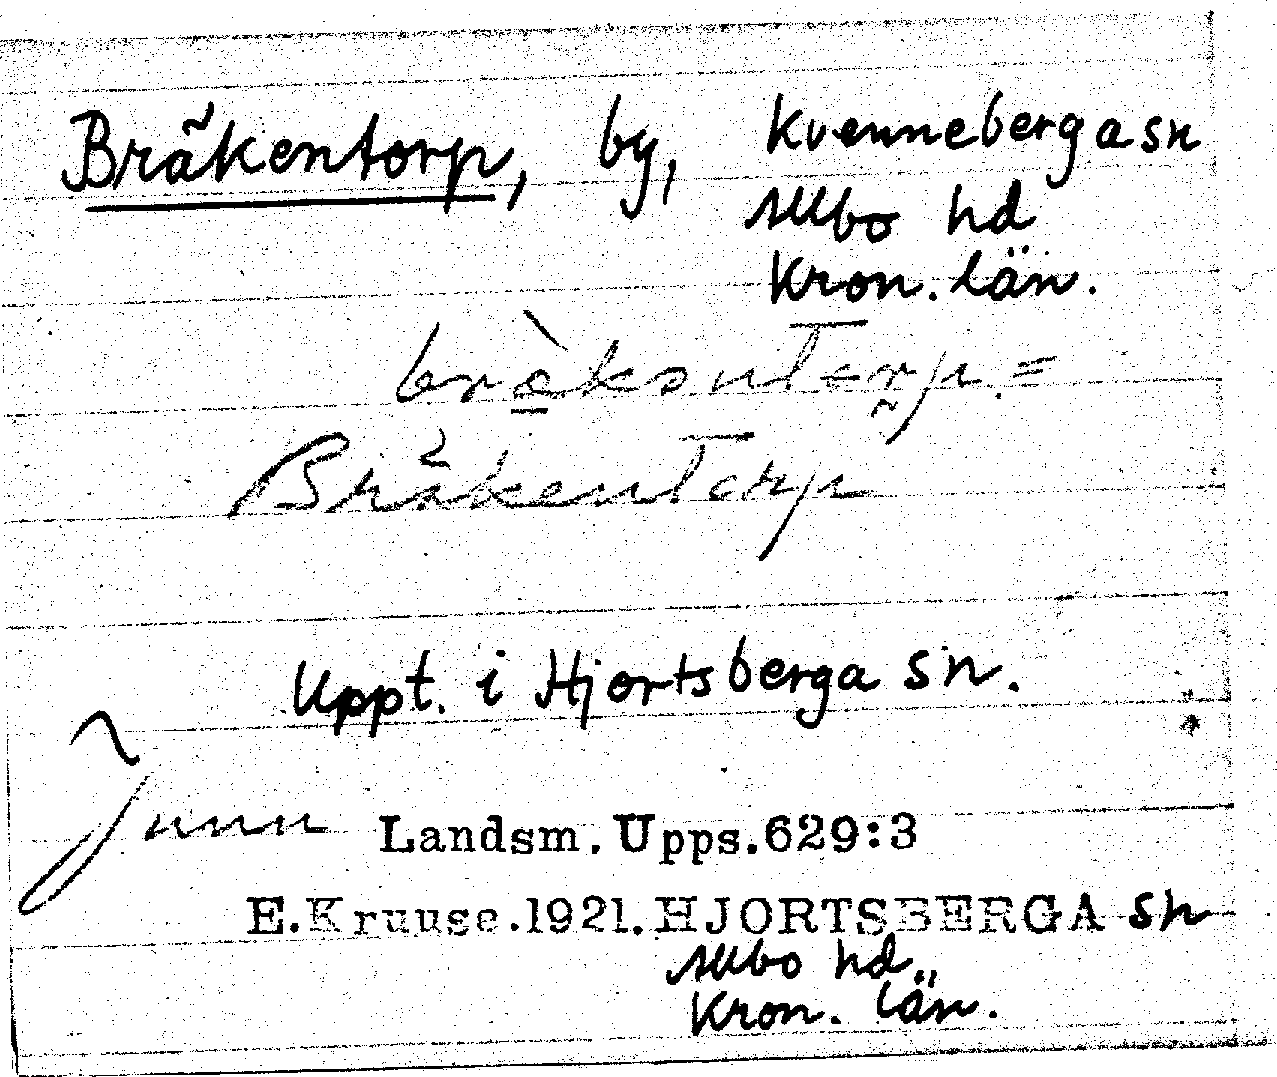 Bråkentorp, by, Kvenneberga sn
Allbo hd
Kron. län.
Bråkentorp
Uppt. i Hjortsberga sn.
Landsm. Upps. 629:3
E. Kruuse. 1921. HJORTSBERGA sn
Allbo hd.,
Kron. län.